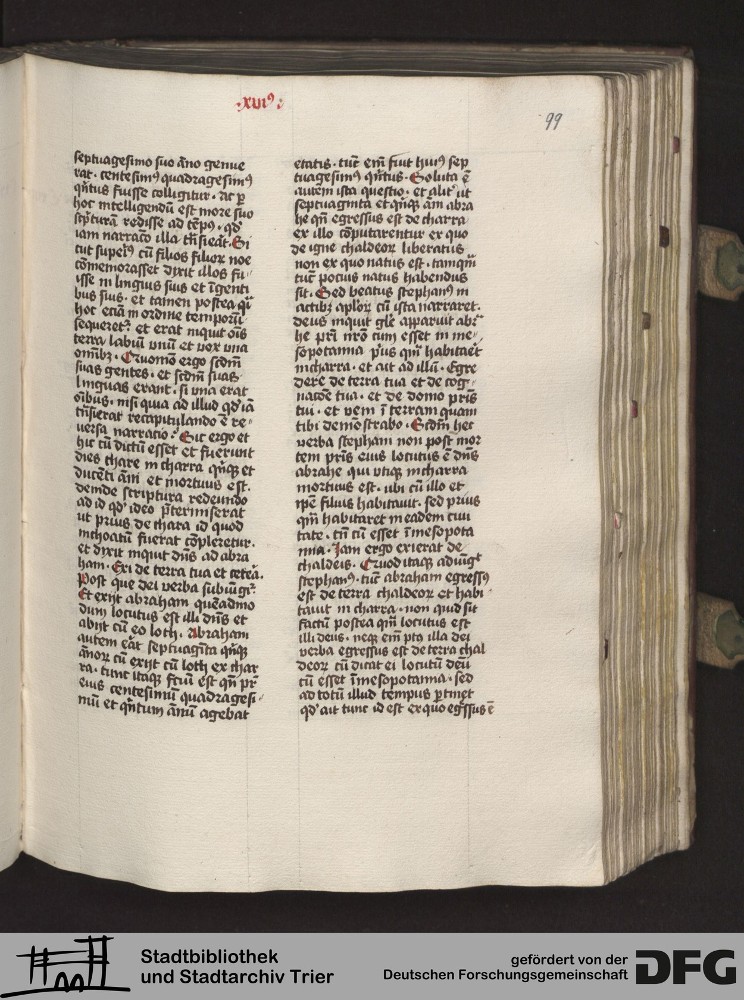 .xvi⁹.
99
septuagesimo suo ãno genue
rat. centesim⁹ quadragesim⁹
qñtus fuisse colligitur. ac ꝑ
hoc intelligendũ est more suo
sc̃pturã redisse ad tẽp⁹. qd᷑
iam narraco illa trãsierat. Si
cut superi⁹ cũ filios filior noe
cõmemorasset dixit illos fu-
isse in linguis suis et ĩgenti
bus suis. et tamen postea qi
hoc eciã in ordine temporũ
sequeret᷑. et erat inquit oñs
terra labiũ vnũ et vox vna
omĩbz. Quomõ ergo scdm̃
suas gentes. et scdm̃ suas
linguas erant. si vna erat
oĩbus. nisi quia ad illud qd᷑ iã
trãsierat recapitulando ẽ re-
uersa narracio. Sic ergo et
hic cũ dictũ esset et fuerunt
dies thare in charra qñqꝫ et
ducẽti ãni et mortuus est.
deinde scriptura redeundo
ad id qd᷑ ideo p̃termiserat
ut prius de thara id quod
inchoatũ fuerat cõpleretur.
et dixit inquit dñs ad abra
ham. Exi de terra tua et cetẽa.
Post que dei verba subiũgit᷑.
Et exijt abraham quẽadmo
dum locutus est illi dñs et
abijt cũ eo loth. Abraham
autem erat septuagĩta qñqꝫ
ãnor cũ exijt cũ loth ex char
ra. tunc itaqꝫ fcũ est qñ pr̃
eius centesimũ quadragesi-
mũ et qñtum ãnũ agebat
etatis. tũc em̃ fuit hui⁹ sep
tuagesim⁹ qñtus. Soluta ẽ
autem ista questio. et alit᷑ ut
septuaginta et qñqꝫ ãni abra
he qñ egressus est de charra
ex illo cõputarentur ex quo
de igne chaldeor liberatus
non ex quo natus est. tamqm̃
tũc pocius natus habendus
sit. Sed beatus stephan⁹ in
actibꝫ aplor cũ ista narraret.
deus inquit gl̃e apparuit abr̃
he pr̃i nr̃o cum esset in me-
sopotamia p⁹us qm̃ habitaret
in charra. et ait ad illũ. Egre
dere de terra tua et de cog-
nacõe tua. et de domo pr̃is
tui. et veni ĩ terram quam
tibi demõstrabo. Scdm̃ hec
verba stephani non post mor
tem pr̃is eius locutus ẽ dñs
abrahe qui vtiqꝫ in charra
mortuus est. ubi cũ illo et
ip̃e filius habitauit. sed prius
qm̃ habitaret in eadem ciui
tate. tñ cũ esset ĩ mesopota
mia. Jam ergo exierat de
chaldeis. Quod itaqꝫ adiũgit
stephan⁹. tũc abraham egress⁹
est de terra chaldeor et habi
tauit in charra. non quid sit
factũ postea qm̃ locutus est
illi deus. neqꝫ em̃ p̃t illa dei
verba egressus est de terra chal
deor cũ dicat ei locutũ deũ
cũ esset ĩ mesopotamia. sed
ad totũ illud tempus p̃tinet
qd᷑ ait tunc id est ex quo egr̃ssus ẽ
Stadtbibliothek
und Stadtarchiv Trier
gefördert von der
Deutschen Forschungsgemeinschaft
DFG